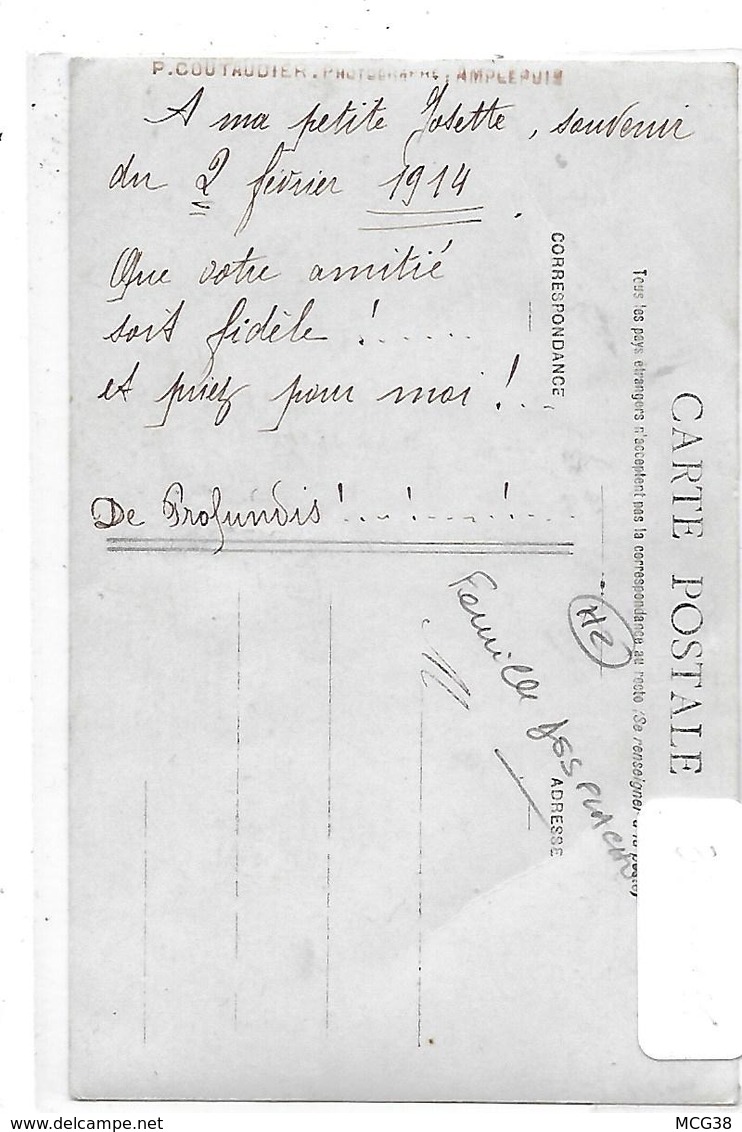 P. COUTAUDIER. PHOTOGRAPHE. AMPLEPUIS
A ma petite Josette, souvenir
du 2 février 1914.
Que votre amitié
soit fidèle !......
et priez pour moi !..
De Profundis !...!......!....
CARTE POSTALE
Tous les pays étrangers n'acceptent pas la correspondance au recto (Se renseigner à la poste)
CORRESPONDANCE
ADRESSE
Famille
MCG38